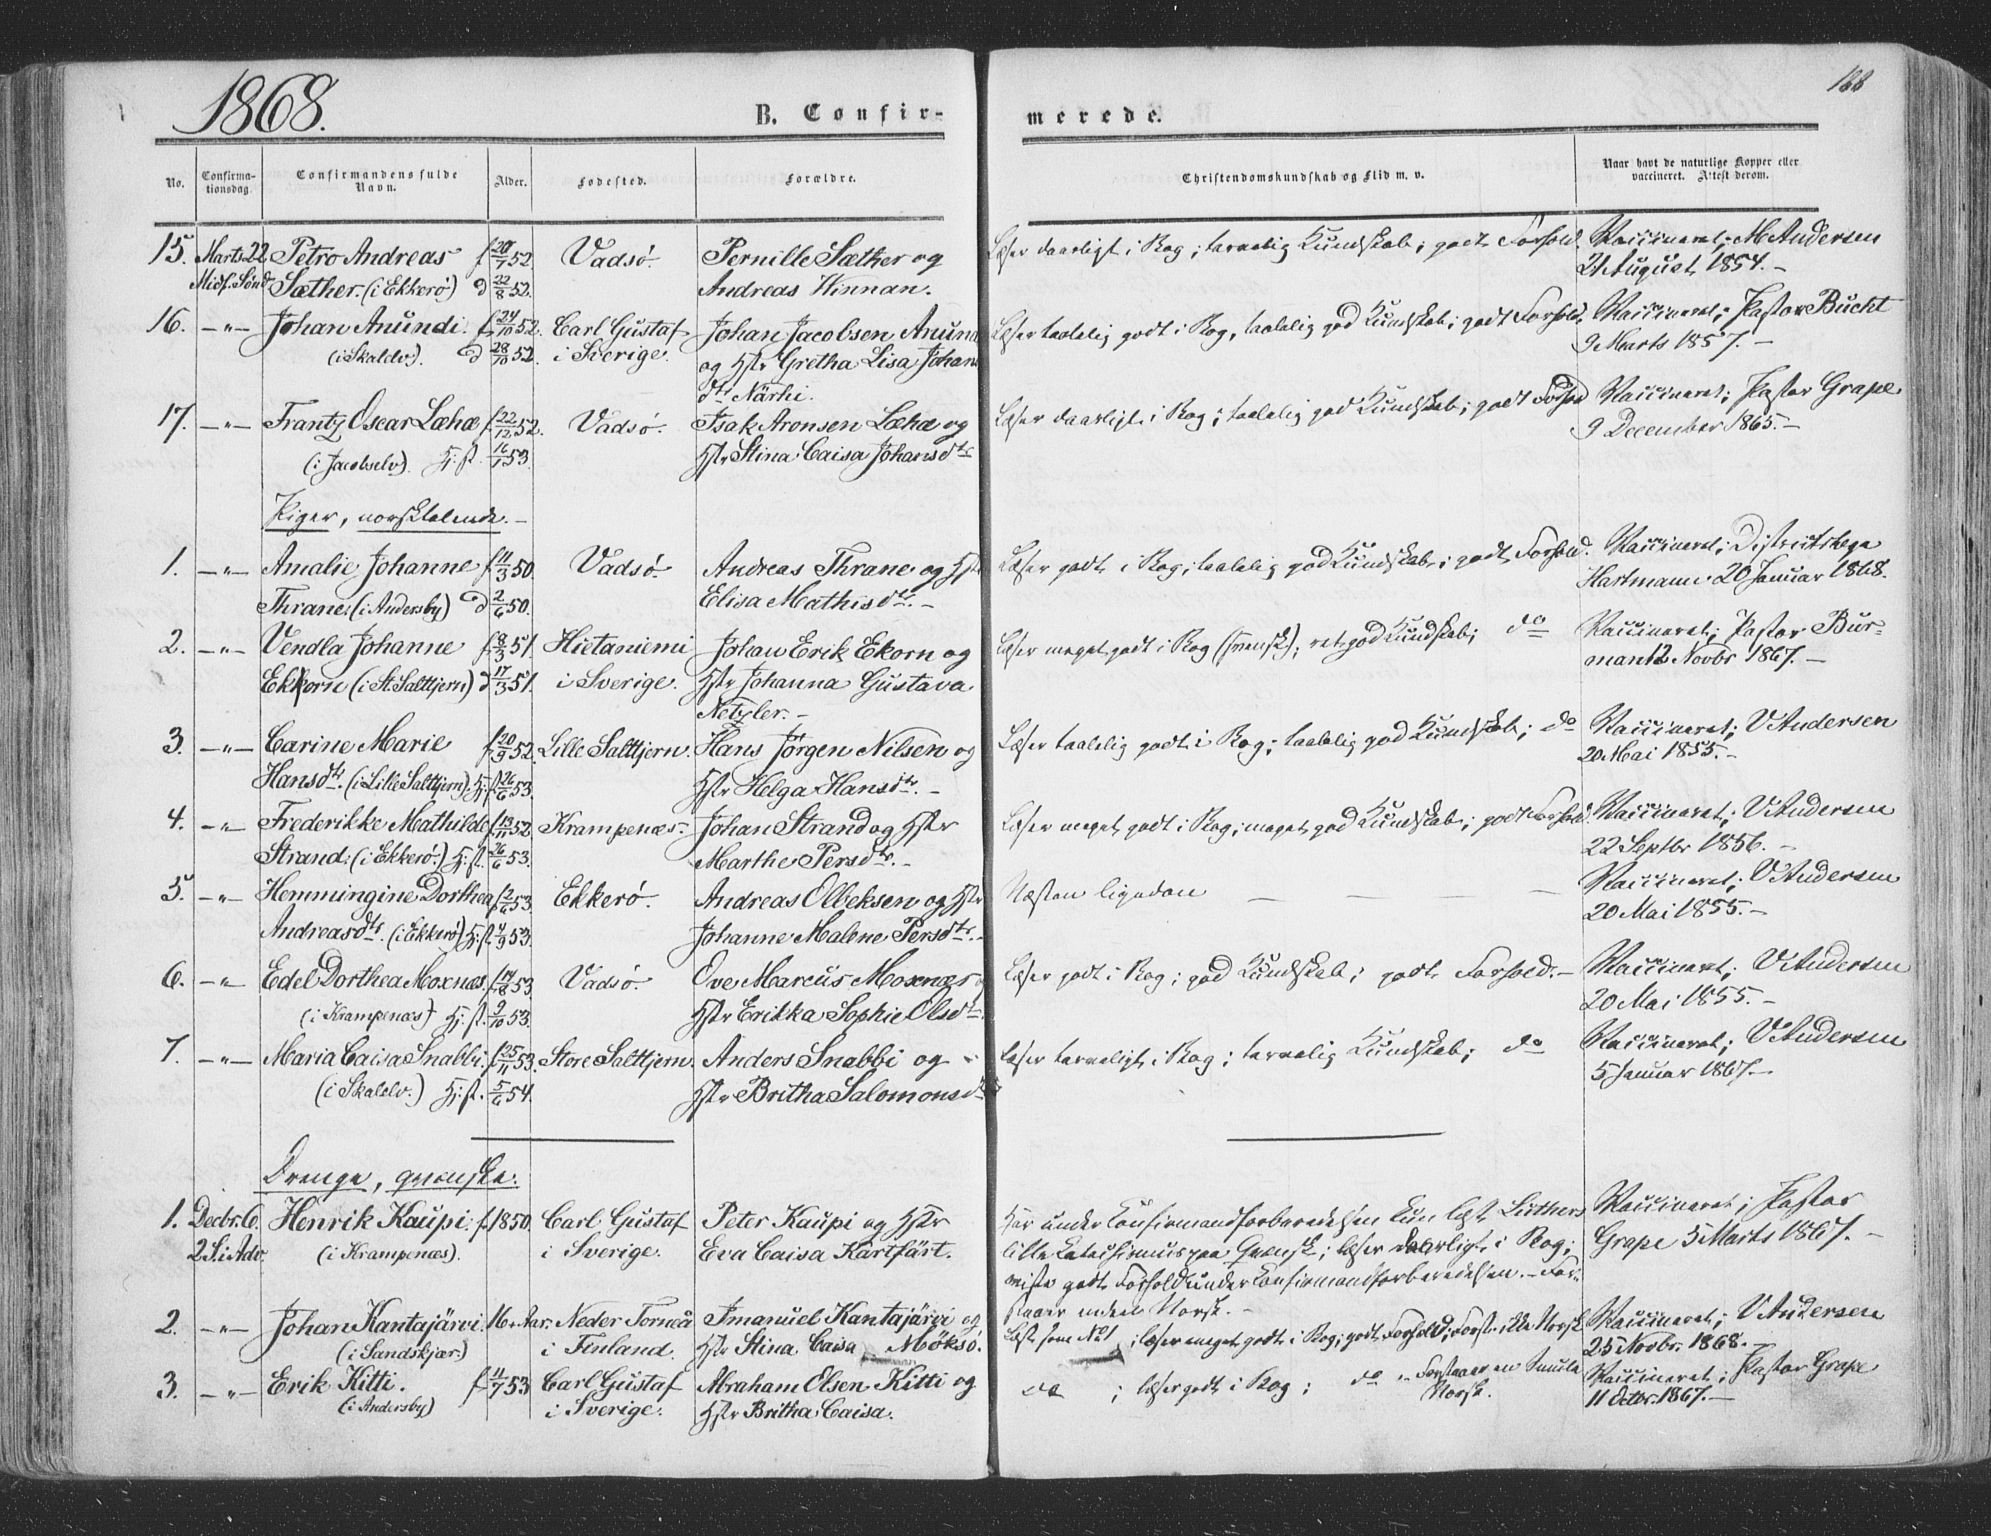 1868.
188
B. Confir-
merede.
No.
Confirma-
tionsdag.
Confirmandens fulde
Navn.
Alder.
Fødested.
Forældre.
Christendomskundskab og Flid m. v.
Naar havt de naturlige Kopper eller
vaccineret. Attest derom.
15. Marts 22 Petro Andreas f 20/7 52. Vadsö. Pernille Sæther og Læser daarligt i Bog; tarvelig Kundskab; godt Forhold. Vaccineret; M Andersen
Midf. Sönd. Sæther. (i Ekkerö) d 22/8 52. Andreas Hinnan. 21 August 1854. –
16. –"– Johan Anundi. f 24/10 52. Carl Gustaf Johan Jacobsen Anundi Læser taalelig godt i Bog, taalelig god Kundskab; godt Forhold. Vaccineret; Pastor Bucht
(i Skalelv). d 28/10 52. i Sverige. og Hstr Gretha Lisa Johans 9 Marts 1857. –
dtr Närhi.
17. –"– Frantz Oscar Læhæ f 22/12 52. Vadsö. Isak Aronsen Læhæ og Læser daarligt i Bog; taalelig god Kundskab; godt Forhold Vaccineret; Pastor Grape
(i Jacobselv). Hj. d. 16/1 53. Hstr Stina Caisa Johansdtr 9 December 1865. –
Piger, norsktalende. –
1. –"– Amalie Johanne f 11/3 50. Vadsö. Andreas Thrane og Hstr Læser godt i Bog; taalelig god Kundskab; godt Forhold. Vaccineret; Districtslæge
Thrane: (i Andersby) d 2/6 50. Elisa Mathisdtr. – Hartmann 20 Januar 1868.
2. –"– Vendla Johanne f 8/3 51. Hietaniemi Johan Erik Ekorn og Læser meget godt i Bog (svensk); ret god Kundskab; do Vaccineret; Pastor Bur-
Ekkorn (i St. Salttjern) d 17/3 51. i Sverige. Hstr Johanna Gustava man 12 Novbr 1867. –
Netzler. –
3. –"– Carine Marie f 20/9 52. Lille Salttjern. Hans Jörgen Nilsen og Læser taalelig godt i Bog; taalelig god Kundskab; do Vaccineret; V Andersen
Hansdtr. (i Lille Salttjern). Hj. d. 26/6 53. Hstr Helga Hansdtr. – 20 Mai 1855. –
4. –"– Frederikke Mathilde f 13/11 52. Krampenæs. Johan Strand og Hstr Læser meget godt i Bog; meget god Kundskab; godt Forhold. Vaccineret; V Andersen
Strand: (i Ekkerö.) Hj. d. 26/6 53. Marthe Persdtr. – 22 Septbr 1856. –
5. –"– Hemmingine Dorthea f 2/6 53. Ekkerö. Andreas Olbeksen og Hstr Næsten ligedan – – – – Vaccineret; V Andersen
Andreasdtr. (i Ekkerö) Hj. d. 4/9 53. Johanne Malene Persdtr. – 20 Mai 1855. –
6. –"– Edel Dorthea Moxnæs. f 14/8 53. Vadsö. Ove Marcus Moxnæs og Læser godt i Bog; god Kundskab; godt Forhold. – Vaccineret; V Andersen
(i Krampenæs) Hj. d. 9/10 53. Hstr Erikka Sophie Olsdtr. 20 Mai 1855. –
7. –"– Maria Caisa Snabbi. f 25/11 53. Store Salttjern. Anders Snabbi og Læser tarveligt i Bog; tarvelig Kundskab; do Vaccineret; V Andersen
(i Skalelv.) Hj. d. 5/6 54. Hstr Britha Salomonsdtr 5 Januar 1867. –
Drenge, qvænske.
1. Decbr. 6. Henrik Kaupi. f. 1850. Carl Gustaf Peter Kaupi og Hstr Har under Konfirmandforberedelsen kun læst Luthers Vaccineret; Pastor
2 S. i Adv. (i Krampenæs). i Sverige. Eva Caisa Kartfärt. lille Katechismus paa Qvænsk; læser daarligt i Bog; Grape 5 Marts 1867. –
viste godt Forhold under Konfirmandforberedelsen. – For-
staaer intet Norsk. –
2. –"– Johan Kantajärvi. 16 Aar. Neder Torneå Imanuel Kantajärvi og Læst som No 1; læser meget godt i Bog; godt Forhold; Forst. ikke Norsk Vaccineret; V Andersen
(i Sandskjær.) i Finland. Hstr Stina Caisa Möksö. 25 Novbr. 1868. –
3. –"– Erik Kitti. f 11/7 53 Carl Gustaf Abraham Olsen Kitti og do; læser godt i Bog; do " Forstaaer en Smule Vaccineret; Pastor Grape
(i Andersby) i Sverige. Hstr Britha Caisa. Norsk. 11 Octbr. 1867. –